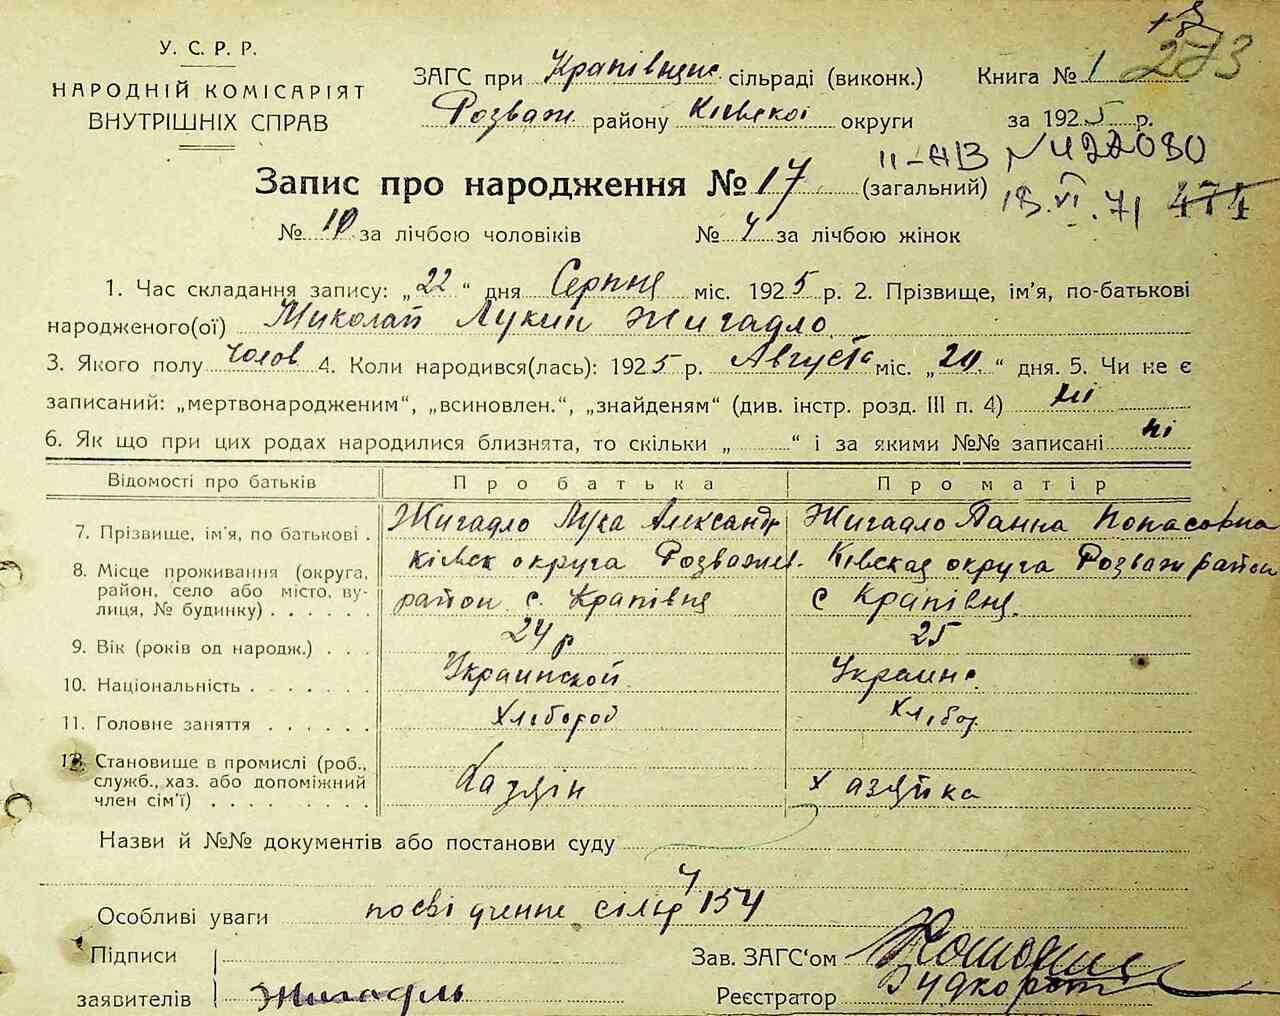 У. С. Р. Р.
НАРОДНІЙ КОМІСАРІЯТ
ВНУТРІШНІХ СПРАВ
ЗАГС при Крапівщис. сільраді (виконк.)
Розваж району Кіевской округи
Книга № 1 273
за 1925 р.
II-АВ № 422080
18.VI.71 474
Запис про народження № 17 (загальний)
№ 10 за лічбою чоловіків № 7 за лічбою жінок
1. Час складання запису: „22“ дня Серпня міс. 1925 р. 2. Прізвище, ім'я, по-батькові
народженого(ої) Миколай Лукич Жигадло
3. Якого полу чолов 4. Коли народився(лась): 1925 р. Августа міс. „20“ дня. 5. Чи не є
записаний: „мертвонародженим“, „всиновлен.“, „знайденям“ (див. інстр. розд. III п. 4) ні
6. Як що при цих родах народилися близнята, то скільки „ “ і за якими №№ записані ні
Відомості про батьків Про батька Про матір
7. Прізвище, ім'я, по батькові . Жигадло Лука Александр Жигадло Ганна
8. Місце проживання (округа, Кіевск округа Розважев. Кіевская округа Розваж район
район, село або місто, ву- район с. Крапівня с Крапівня.
лиця, № будинку) . . . . . .
9. Вік (років од народж.) . . . 24 р 25
10. Національність . . . . . . . Украинской Украинс.
11. Головне заняття . . . . . . Хлібороб Хлібор.
12. Становище в промислі (роб., служб., хаз. або допоміжний член сім'ї) . . . . . . . . хазяін хазяйка
Назви й №№ документів або постанови суду
Особливі уваги посвідченне сільр 154
Підписи
заявителів Жигадль
Зав. ЗАГС'ом
Реєстратор